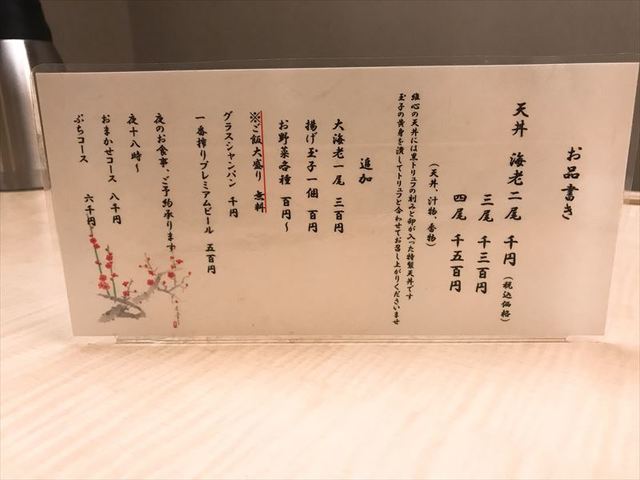 お品書き
天丼 海老二尾 千円 (税込価格)
三尾 千三百円
四尾 千五百円
(天丼、汁物、香物)
雄心の天丼には黒トリュフの刻みと卵が入った特製天丼です
玉子の黄身を潰してトリュフと合わせてお召し上がりくださいませ
追加
大海老一尾 三百円
揚げ玉子一個 百円
お野菜各種 百円〜
※ご飯大盛り 無料
グラスシャンパン 千円
一番搾りプレミアムビール 五百円
夜のお食事、ご予約承ります
夜十八時〜
おまかせコース 八千円
ぷちコース 六千円